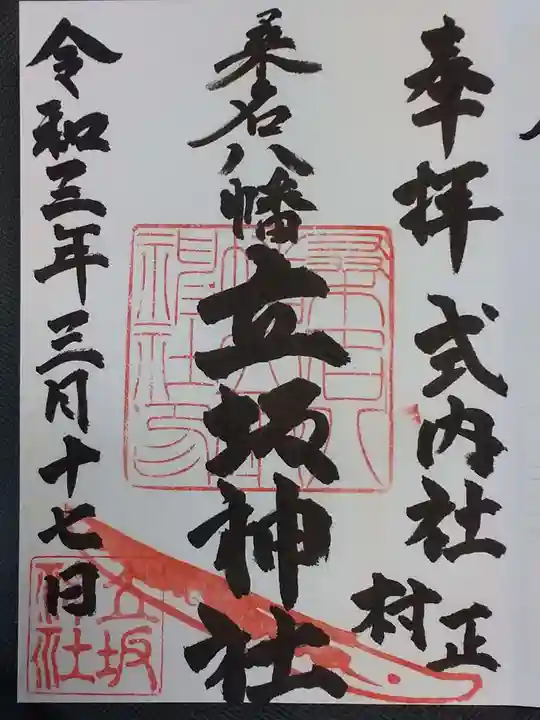 奉拝 式内社
村正
桑名八幡
立坂神社
令和三年三月十七日
立坂
神社